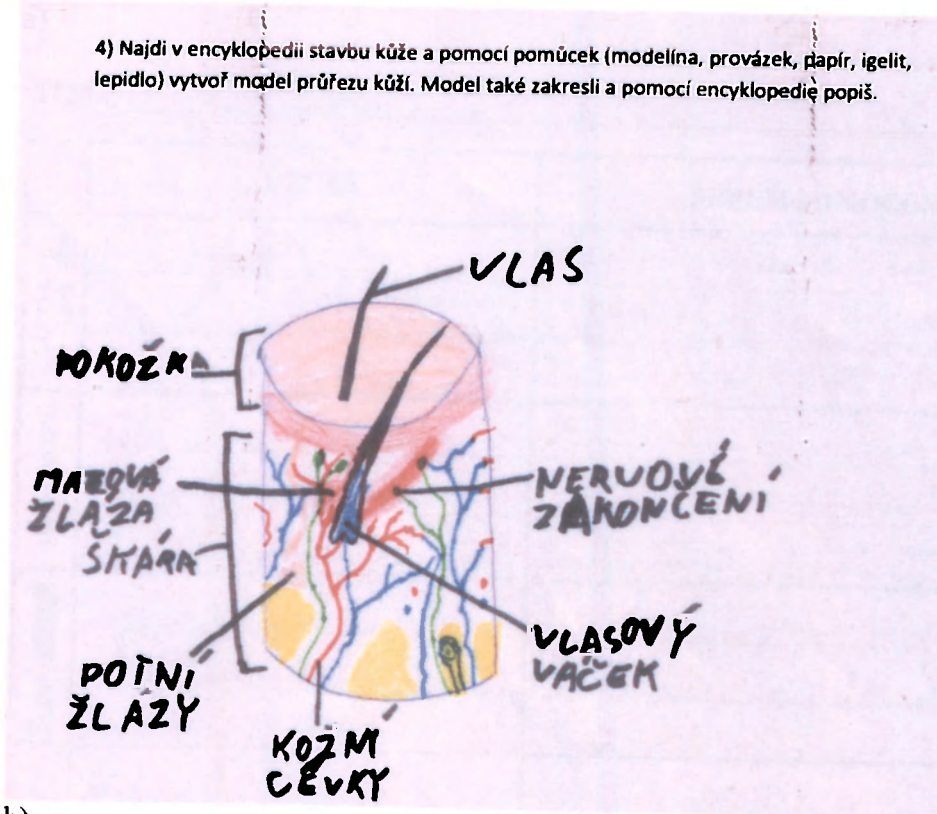 4) Najdi v encyklopedii stavbu kůže a pomocí pomůcek (modelína, provázek, papír, igelit,
lepidlo) vytvoř model průřezu kůží. Model také zakresli a pomocí encyklopedie popiš.
VLAS
POKOŽKA
MAZOVÁ
ŽLÁZA
NERVOVÉ
ZAKONČENÍ
ŠKÁRA
VLASOVÝ
VÁČEK
POTNÍ
ŽLÁZY
KOŽNÍ
CÉVKY
b)